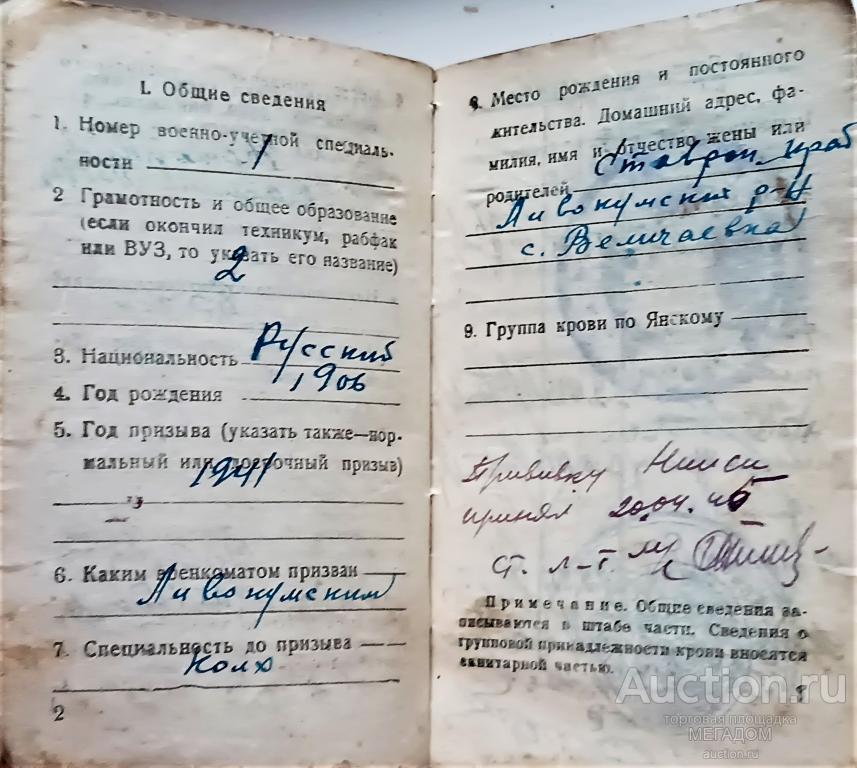 I. Общие сведения
1. Номер военно-учетной специаль-
ности 1
2 Грамотность и общее образование
(если окончил техникум, рабфак
или ВУЗ, то указать его название)
2
3. Национальность Русский
4. Год рождения 1906
5. Год призыва (указать также—нор-
мальный или досрочный призыв)
1941
6. Каким военкоматом призван
Ливокумский
7. Специальность до призыва
Колх
2
8. Место рождения и постоянного
жительства. Домашний адрес, фа-
милия, имя и отчество жены или
родителей Ставроп. край
Ливокумский р-н
с. Величаевка
9. Группа крови по Янскому
Прививку
принял 20.04.45
ст. л-т. м/с
Примечание. Общие сведения за-
писываются в штабе части. Сведения о
групповой принадлежности крови вносятся
санитарной частью.
Auction.ru
торговая площадка
МЕГАДОМ
auction.ru